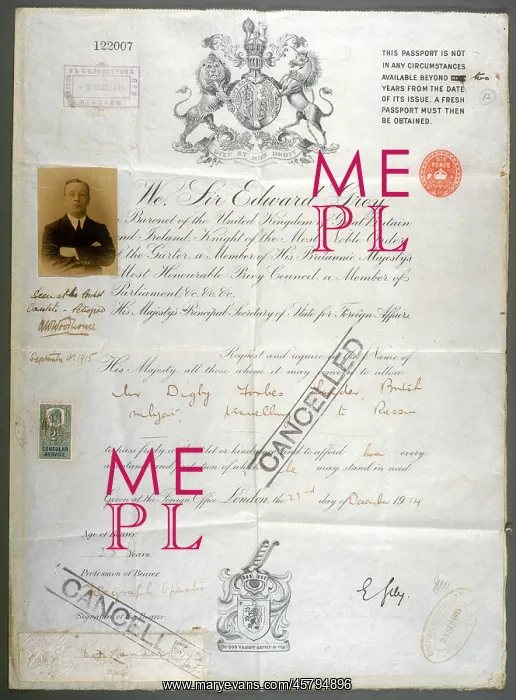 122007
THIS PASSPORT IS NOT
IN ANY CIRCUMSTANCES
AVAILABLE BEYOND two
YEARS FROM THE DATE
OF ITS ISSUE. A FRESH
PASSPORT MUST THEN
BE OBTAINED.
12
SIX PENCE
DIEU ET MON DROIT
ME
PL
We, Sir Edward Grey
a Baronet of the United Kingdom of Great Britain
and Ireland, Knight of the Most Noble Order
of the Garter, a Member of His Britannic Majesty's
Most Honourable Privy Council, a Member of
Parliament &c. &c. &c.
His Majesty's Principal Secretary of State for Foreign Affairs,
Seen at the British
Consulate - Petrograd
AW Woodhouse
September 1915
Request and require in the Name of
His Majesty, all those whom it may concern to allow
Mr Digby Forbes British
subject, travelling to Russia
CANCELLED
CONSULAR
SERVICE
to pass freely without let or hindrance and to afford him every
assistance and protection of which he may stand in need
ME
PL
Given at the Foreign Office, London, the 23rd day of December 1914
Age of Bearer
Years.
Profession of Bearer
Telegraph Operator
Signature of the Bearer
CANCELLED
DE BON VOULOIR SERVIR LE ROY
E Grey.
www.maryevans.com/45794896